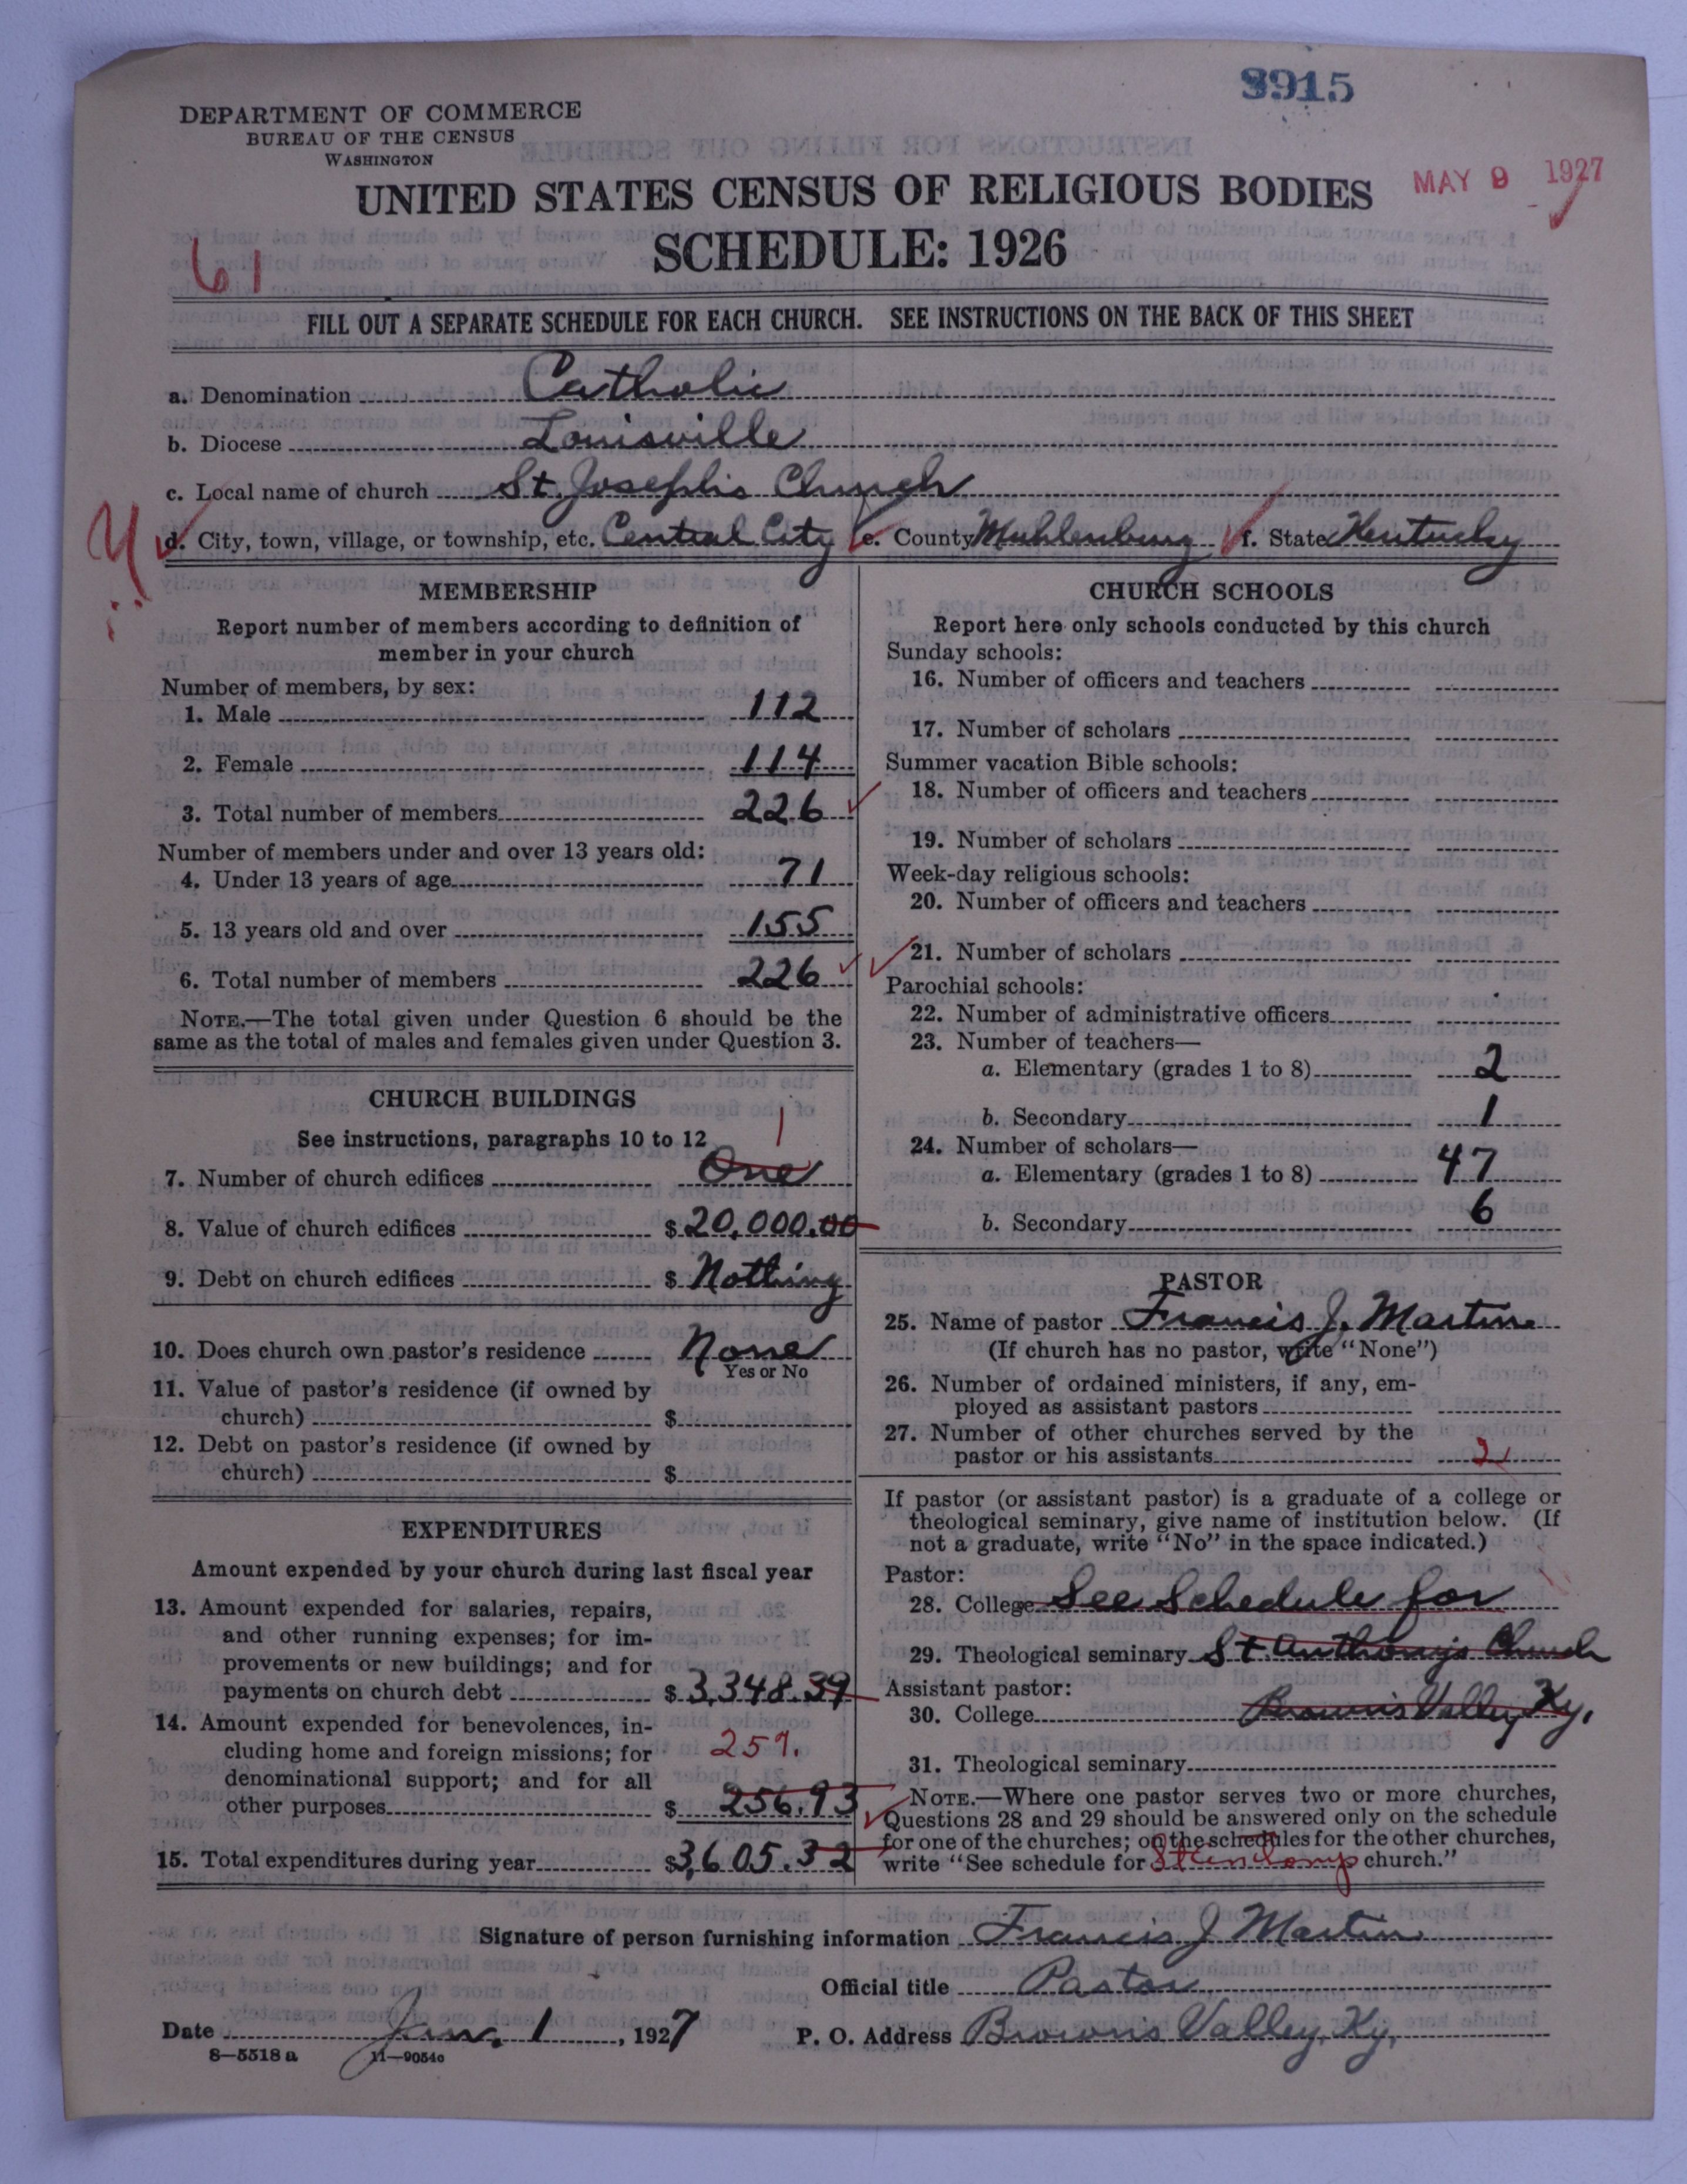 3915
DEPARTMENT OF COMMERCE
BUREAU OF THE CENSUS
WASHINGTON
MAY 9 1927
UNITED STATES CENSUS OF RELIGIOUS BODIES
SCHEDULE: 1926
61
FILL OUT A SEPARATE SCHEDULE FOR EACH CHURCH. SEE INSTRUCTIONS ON THE BACK OF THIS SHEET
a. Denomination Catholic
b. Diocese Louisville
c. Local name of church St. Joseph's Church
d. City, town, village, or township, etc. Central City e. County Muhlenburg f. State Kentucky
MEMBERSHIP
Report number of members according to definition of
member in your church
Number of members, by sex:
1. Male 112
2. Female 114
3. Total number of members 226
Number of members under and over 13 years old:
4. Under 13 years of age 71
5. 13 years old and over 155
6. Total number of members 226
NOTE.—The total given under Question 6 should be the
same as the total of males and females given under Question 3.
CHURCH BUILDINGS
See instructions, paragraphs 10 to 12
1
7. Number of church edifices One
8. Value of church edifices $ 20,000.00
9. Debt on church edifices $ Nothing
10. Does church own pastor's residence None
Yes or No
11. Value of pastor's residence (if owned by
church) $
12. Debt on pastor's residence (if owned by
church) $
EXPENDITURES
Amount expended by your church during last fiscal year
13. Amount expended for salaries, repairs,
and other running expenses; for im-
provements or new buildings; and for
payments on church debt $ 3,348.39
14. Amount expended for benevolences, in-
cluding home and foreign missions; for 257.
denominational support; and for all
other purposes $ 256.93
15. Total expenditures during year $3,605.32
CHURCH SCHOOLS
Report here only schools conducted by this church
Sunday schools:
16. Number of officers and teachers
17. Number of scholars
Summer vacation Bible schools:
18. Number of officers and teachers
19. Number of scholars
Week-day religious schools:
20. Number of officers and teachers
21. Number of scholars
Parochial schools:
22. Number of administrative officers
23. Number of teachers—
a. Elementary (grades 1 to 8) 2
b. Secondary 1
24. Number of scholars—
a. Elementary (grades 1 to 8) 47
b. Secondary 6
PASTOR
25. Name of pastor Francis J. Martin
(If church has no pastor, write "None")
26. Number of ordained ministers, if any, em-
ployed as assistant pastors
27. Number of other churches served by the
pastor or his assistants 2
If pastor (or assistant pastor) is a graduate of a college or
theological seminary, give name of institution below. (If
not a graduate, write "No" in the space indicated.)
Pastor:
28. College See Schedule for
29. Theological seminary St. Anthony's Church
Assistant pastor:
30. College Brown's Valley Ky.
31. Theological seminary
NOTE.—Where one pastor serves two or more churches,
Questions 28 and 29 should be answered only on the schedule
for one of the churches; on the schedules for the other churches,
write "See schedule for St Anthonys church."
Signature of person furnishing information Francis J Martin
Official title Pastor
Date Jan. 1, 1927 P. O. Address Brown's Valley, Ky.
8—5518 a 11—9054c